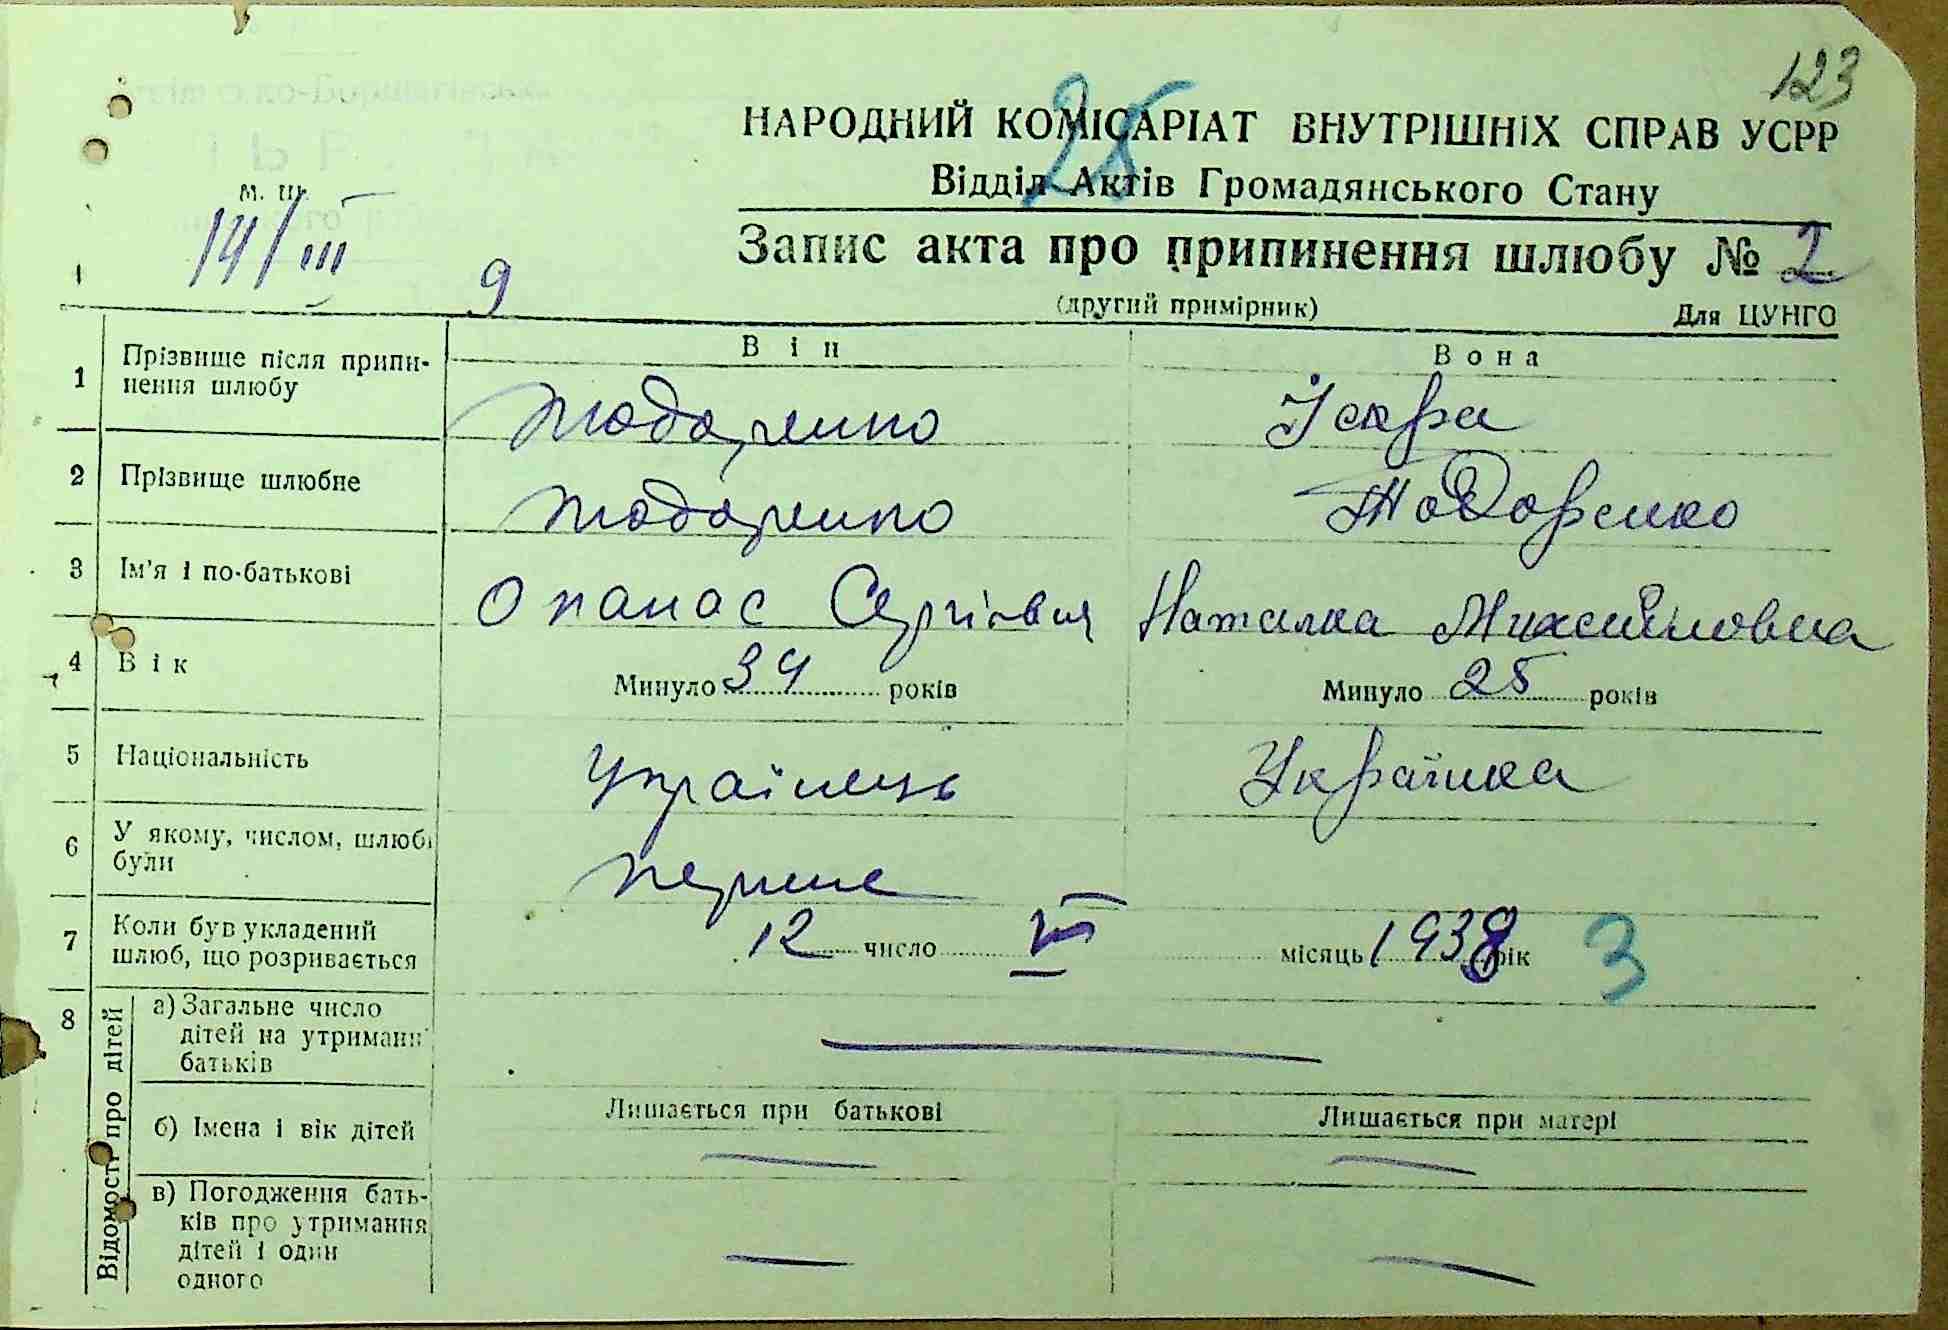 123
НАРОДНИЙ КОМІСАРІАТ ВНУТРІШНІХ СПРАВ УСРР
25
Відділ Актів Громадянського Стану
М. Ш.
14/III 9
Запис акта про припинення шлюбу № 2
(другий примірник) Для ЦУНГО
Він Вона
1 Прізвище після припи-
нення шлюбу
Тодоренко Іскра
2 Прізвище шлюбне Тодоренко Тодоренко
3 Ім'я і по-батькові Опанас Сергієвич Наталка Михайловна
4 Вік Минуло 34 років Минуло 25 років
5 Національність Українець Українка
6 У якому, числом, шлюбі
були
перше
7 Коли був укладений
шлюб, що розривається
12 число місяць 1938 рік 3
8 Відомості про дітей
а) Загальне число
дітей на утриманні
батьків
б) Імена і вік дітей Лишається при батькові Лишається при матері
в) Погодження бать-
ків про утримання
дітей і один
одного